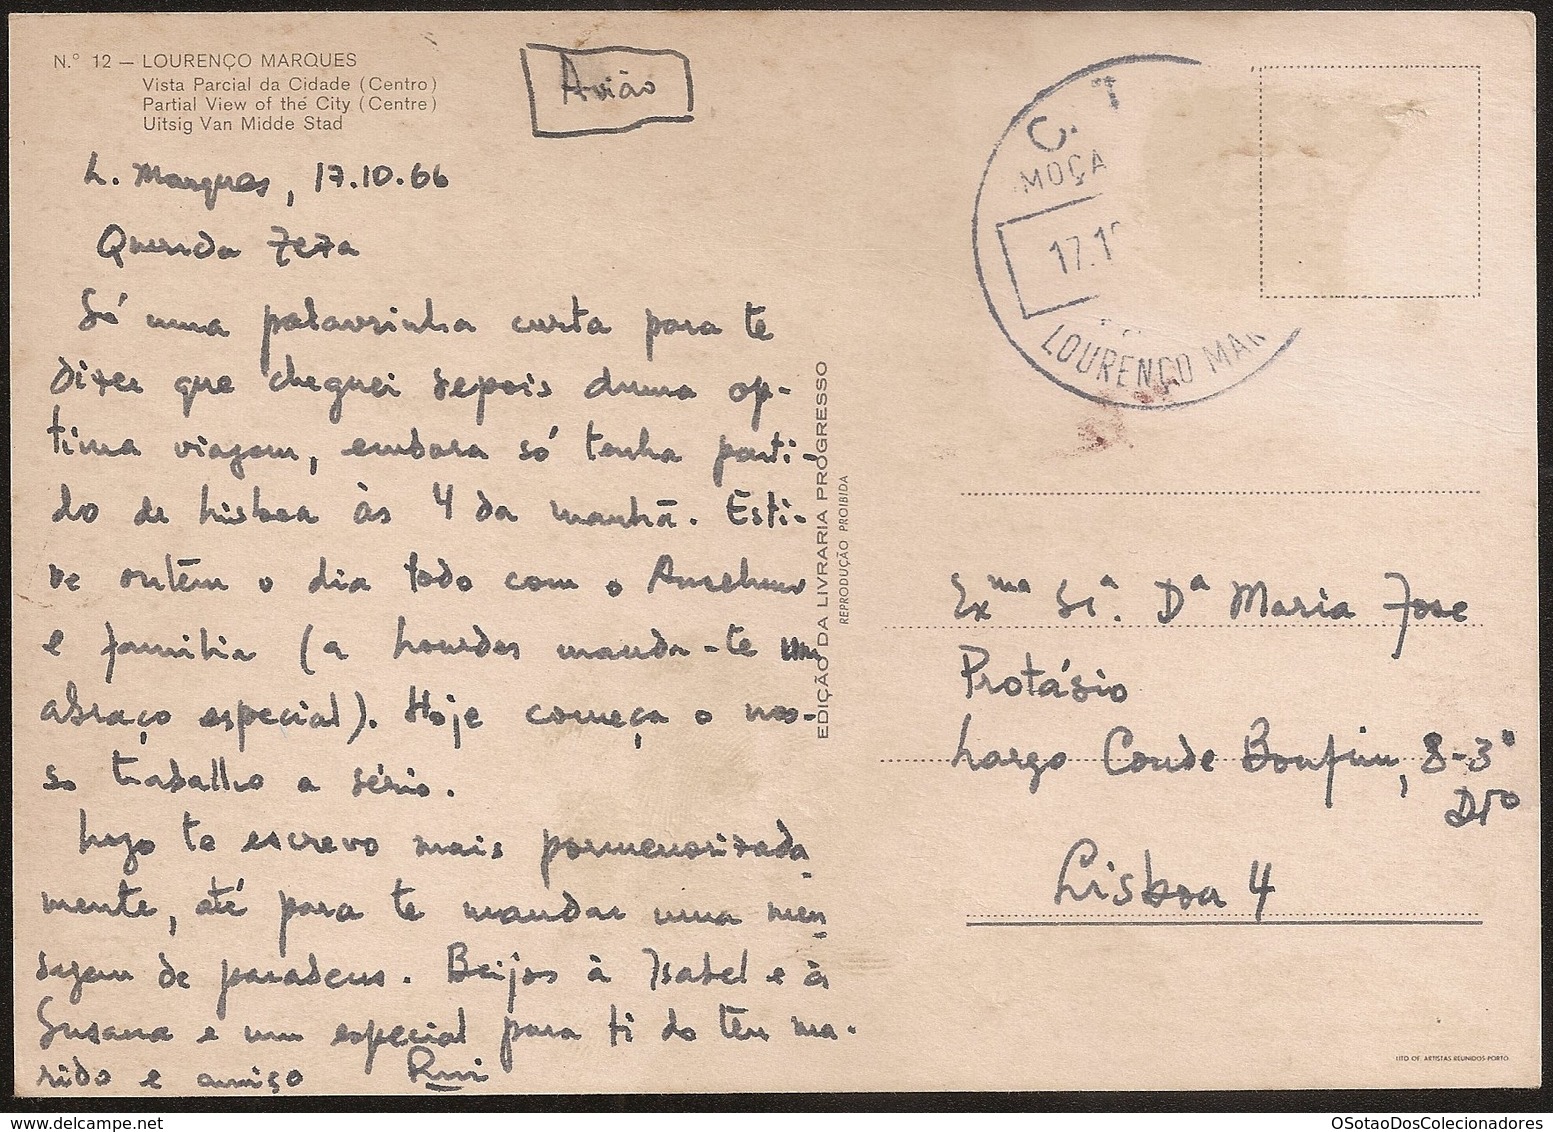 N.º 12 — LOURENÇO MARQUES
Vista Parcial da Cidade (Centro)
Partial View of the City (Centre)
Uitsig Van Midde Stad
Avião
L. Marques, 17.10.66
Querida Zeza
Só uma palavrinha curta para te
dizer que cheguei depois duma óp-
tima viagem, embora só tenha parti-
do de Lisboa às 4 da manhã. Esti-
ve ontem o dia todo com o Anselmo
e família (a Lourdes manda-te um
abraço especial). Hoje começa o nos-
so trabalho a sério.
Logo te escrevo mais pormenorizada
mente, até para te mandar uma men
sagem de parabens. Beijos à Isabel e às
Susana e um especial para ti do teu ma-
rido e amigo Rui
EDIÇÃO DA LIVRARIA PROGRESSO
REPRODUÇÃO PROIBIDA
C. T
MOÇA
17.1
LOURENÇO MAR
Exma Sra. Da Maria Jose
Protásio
Largo Conde Bonfim, 8-3º
Dto
Lisboa 4
LITO OF. ARTISTAS REUNIDOS-PORTO
OSotaoDosColecionadores